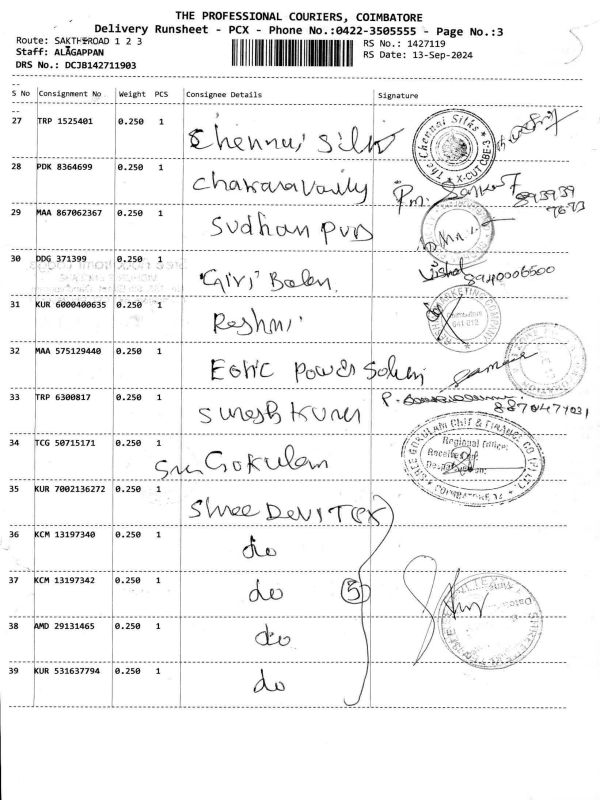 THE PROFESSIONAL COURIERS, COIMBATORE
Delivery Runsheet - PCX - Phone No.:0422-3505555 - Page No.:3
Route: SAKTHI ROAD 1 2 3
RS No.: 1427119
Staff: ALAGAPPAN
RS Date: 13-Sep-2024
DRS No.: DCJB142711903
S No Consignment No Weight PCS Consignee Details Signature
27 TRP 1525401 0.250 1 Chennai Silk
The Chennai Silks * X-CUT CBE-3
28 PDK 8364699 0.250 1 Chakaravarthy
893939
7673
29 MAA 867062367 0.250 1 Sudhan
30 DDG 371399 0.250 1 Giri Balan
8940006500
31 KUR 6000400635 0.250 1 Reshmi
MARKETING COMPANY
641 012
32 MAA 575129440 0.250 1 Power
33 TRP 6300817 0.250 1 Suresh Kumar
8870477031
34 TCG 50715171 0.250 1 Sree Gokulam
SREE GOKULAM CHIT & FINANCE CO (P) LTD.
Regional Office
35 KUR 7002136272 0.250 1 Shree Devi Tex
36 KCM 13197340 0.250 1 do
37 KCM 13197342 0.250 1 do 5
38 AMD 29131465 0.250 1 do
39 KUR 531637794 0.250 1 do